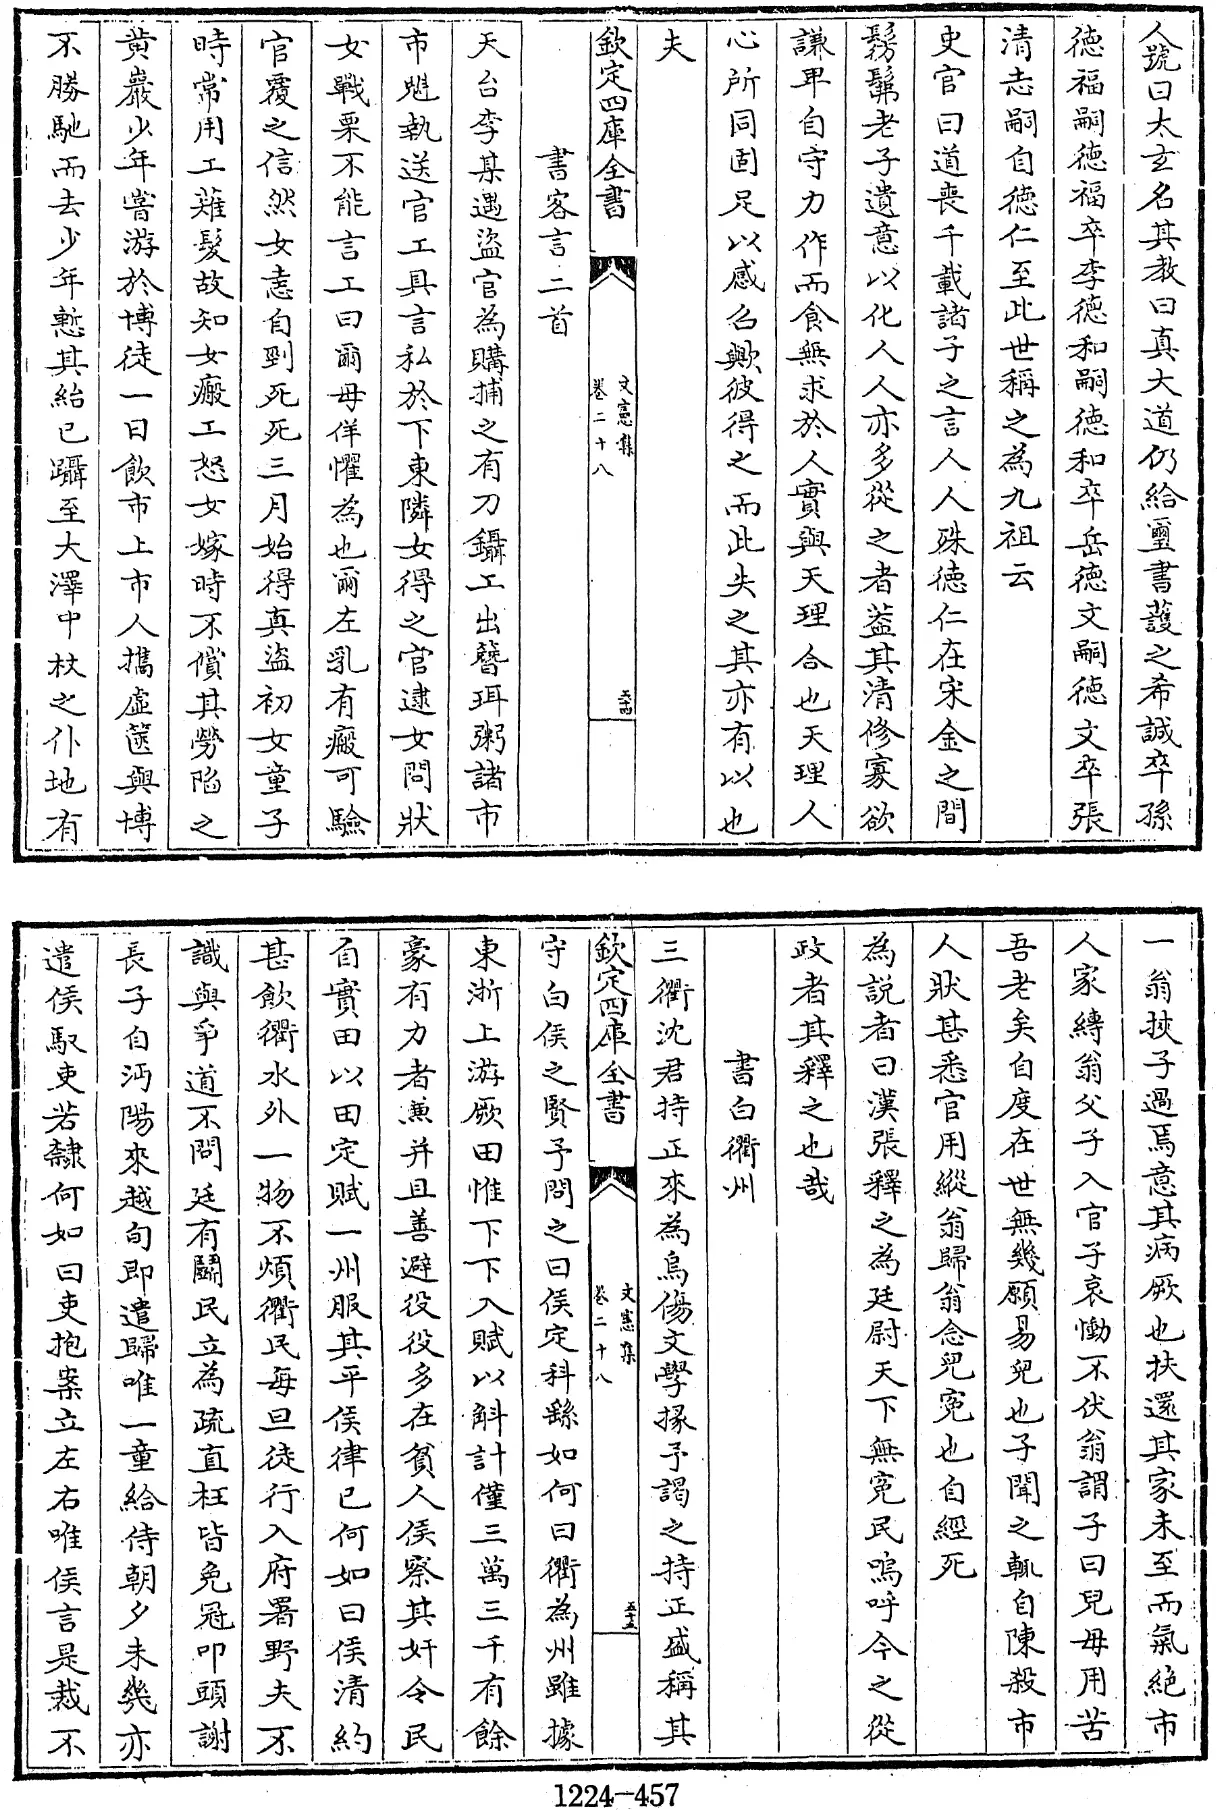 人號曰太玄名其教曰真大道仍給璽書護之希誠卒孫
德福嗣德福卒李德和嗣德和卒岳德文嗣德文卒張
清志嗣自德仁至此世稱之為九祖云
史官曰道喪千載諸子之言人人殊德仁在宋金之間
髣髴老子遺意以化人人亦多從之者蓋其清修寡欲
謙卑自守力作而食無求於人實與天理合也天理人
心所同固足以感召歟彼得之而此失之其亦有以也
夫
欽定四庫全書
文憲集
卷二十八
五十四
書客言二首
天台李某遇盜官為購捕之有刀鑷工出簪珥粥諸市
市䰟執送官工具言私於下東隣女得之官逮女問狀
女戰栗不能言工曰爾毋佯懼為也爾左乳有瘢可驗
官覆之信然女恚自剄死死三月始得真盜初女童子
時常用工薙髮故知女瘢工怒女嫁時不償其勞陷之
黃巖少年嘗游於博徒一日飲市上市人攜虛篋與博
不勝馳而去少年慙其紿已躡至大澤中杖之仆地有
一翁挾子過焉意其病厥也扶還其家未至而氣絕市
人家縛翁父子入官子哀慟不伏翁謂子曰兒毋用苦
吾老矣自度在世無幾願易兒也子聞之輒自陳殺市
人狀甚悉官用縱翁歸翁念兒寃也自經死
為說者曰漢張釋之為廷尉天下無寃民嗚呼今之從
政者其釋之也哉
書白衢州
三衢沈君持正來為烏傷文學掾予謁之持正盛稱其
欽定四庫全書
文憲集
卷二十八
五十五
守白侯之賢予問之曰侯定科繇如何曰衢為州雖據
東浙上游厥田惟下下入賦以斛計僅三萬三千有餘
豪有力者兼并且善避役役多在貧人侯察其奸令民
自實田以田定賦一州服其平侯律已何如曰侯清約
甚飲衢水外一物不煩衢民每旦徒行入府署野夫不
識與爭道不問廷有鬬民立為疏直枉皆免冠叩頭謝
長子自沔陽來越旬即遣歸唯一童給侍朝夕未幾亦
遣侯馭吏若隸何如曰吏抱案立左右唯侯言是裁不
1224—457